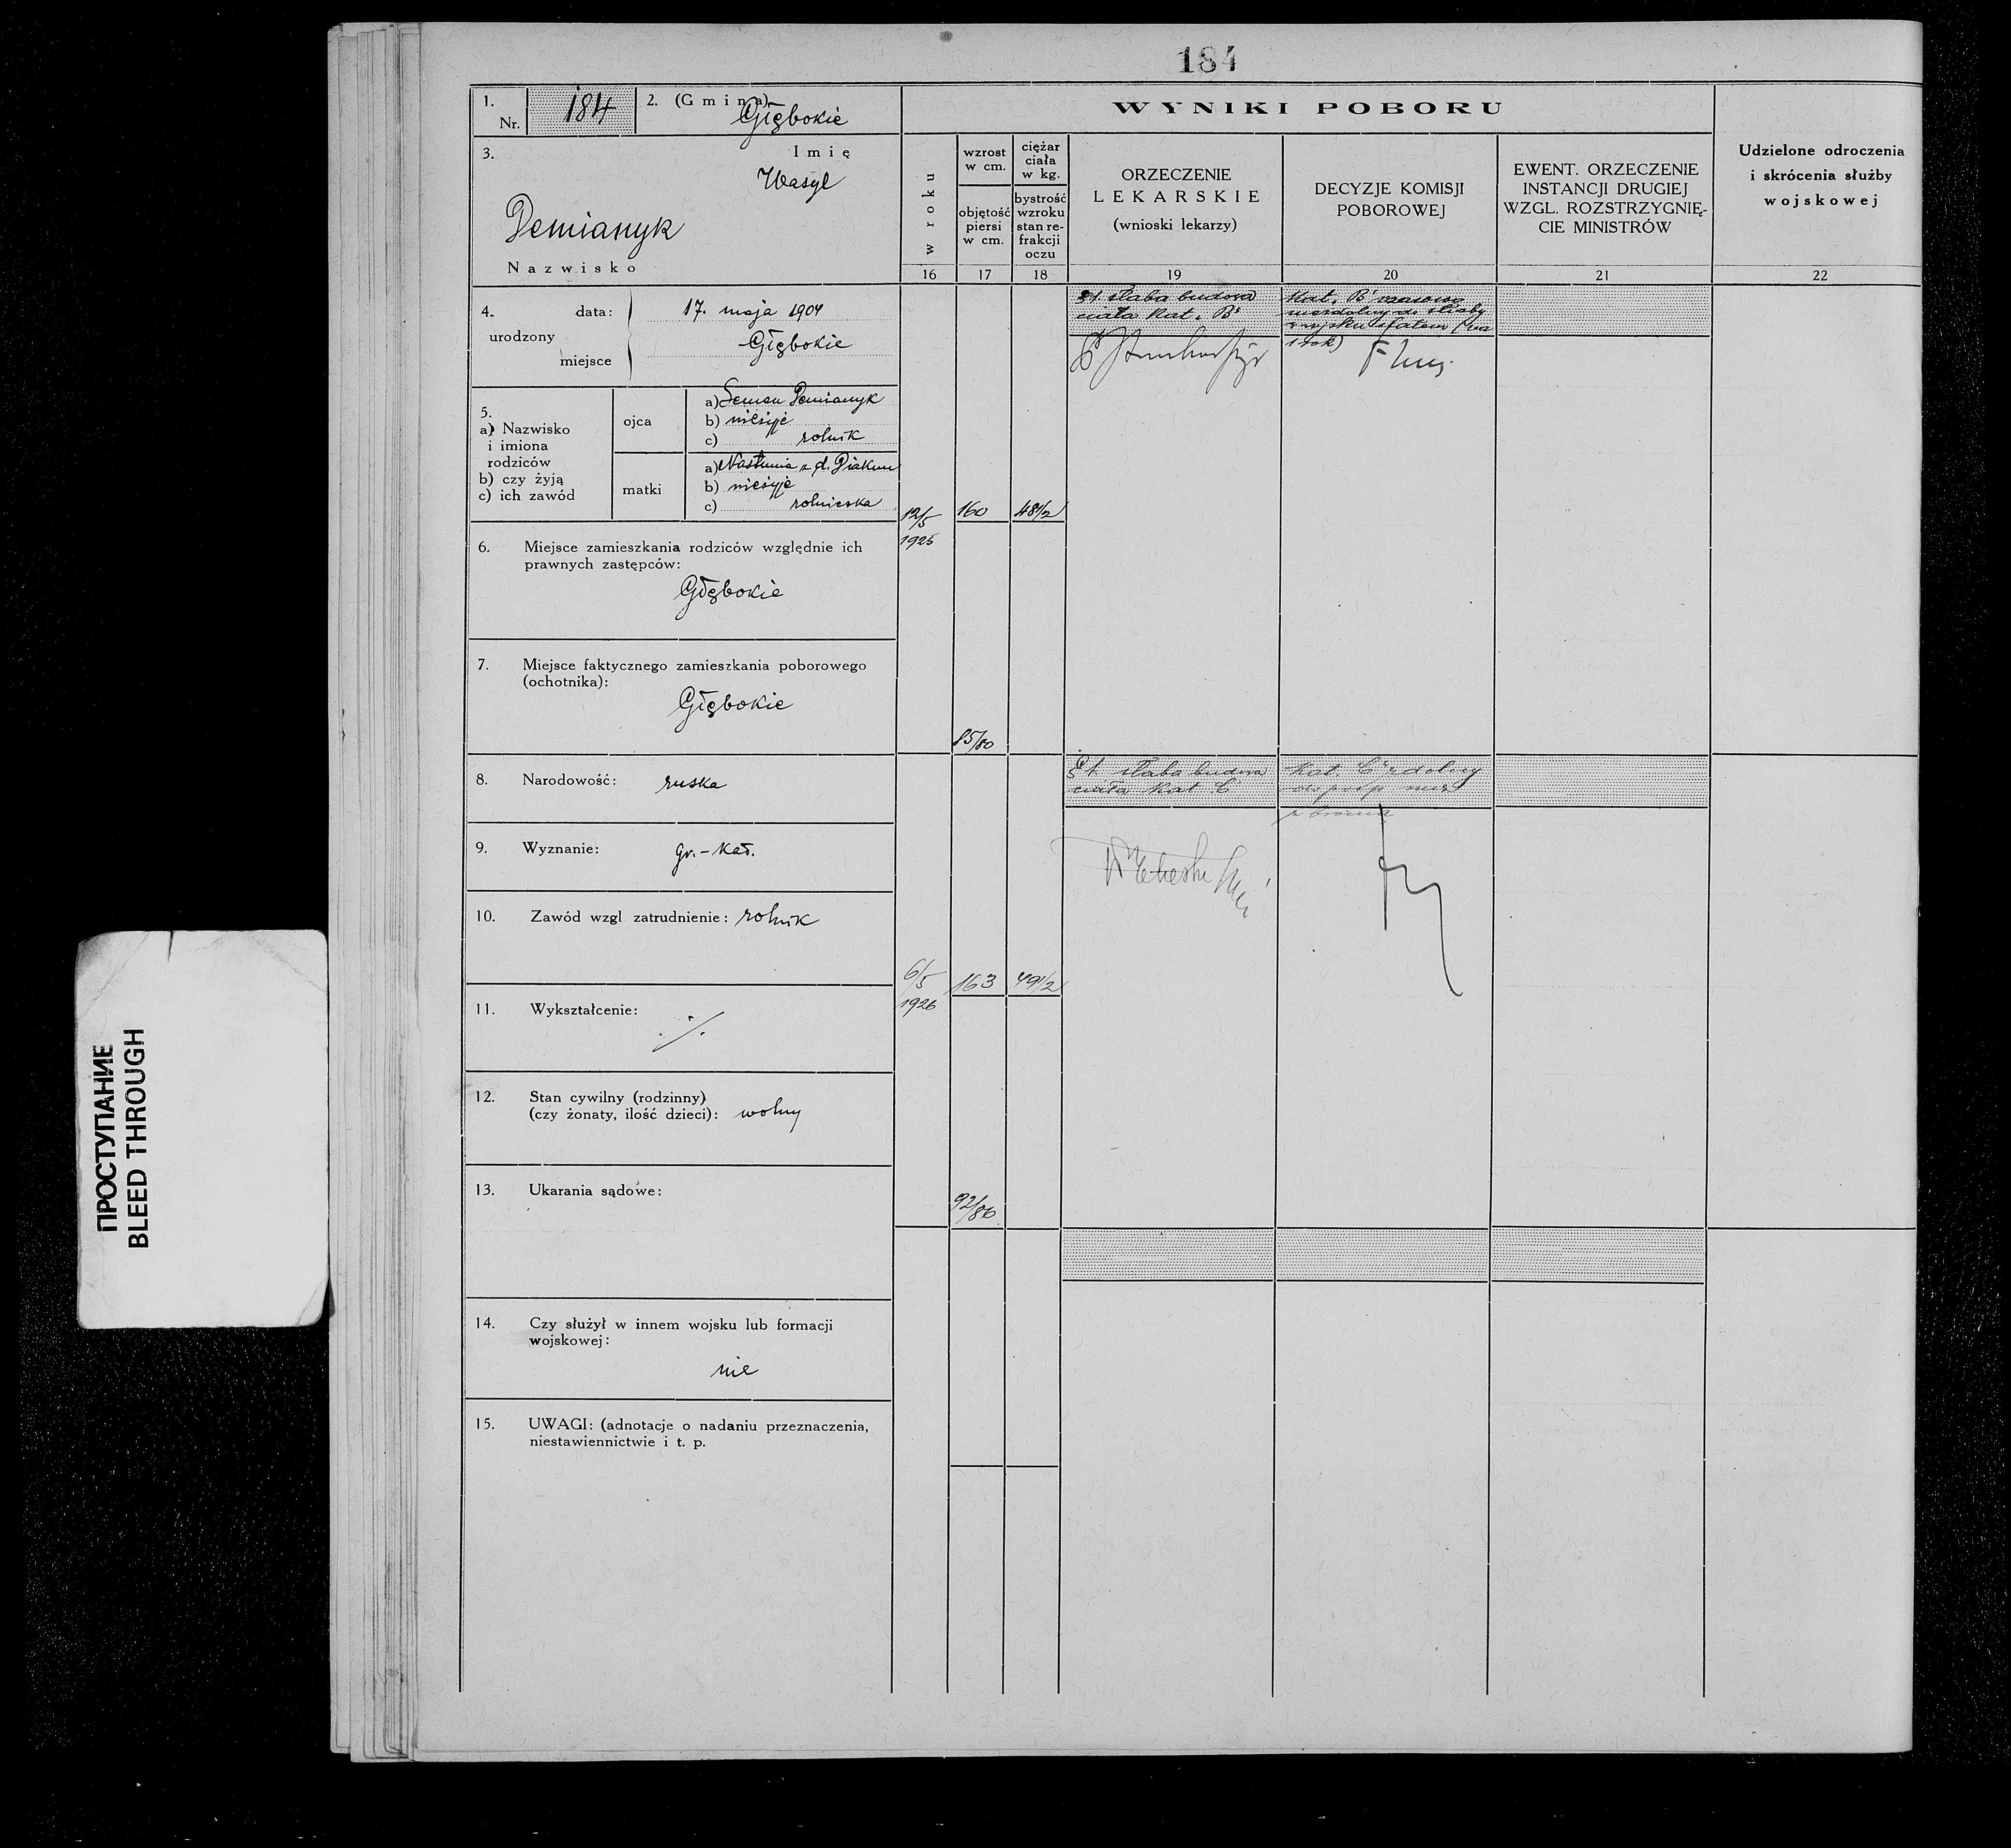 184
1.
Nr. 184
2. (Gmina)
Głębokie
3. Imię
Wasyl
Demianyk
Nazwisko
4. data: 17. maja 1904
urodzony
Głębokie
miejsce
5.
a) Nazwisko
i imiona
rodziców
b) czy żyją
c) ich zawód
ojca
a) Semen Demianyk
b) nieżyje
c) rolnik
matki
a) Nastunia z d. Diakun
b) nieżyje
c) rolniczka
6. Miejsce zamieszkania rodziców względnie ich
prawnych zastępców:
Głębokie
7. Miejsce faktycznego zamieszkania poborowego
(ochotnika):
Głębokie
8. Narodowość: ruska
9. Wyznanie: gr.-kat.
10. Zawód wzgl zatrudnienie: rolnik
11. Wykształcenie:
./.
12. Stan cywilny (rodzinny)
(czy żonaty, ilość dzieci): wolny
13. Ukarania sądowe:
14. Czy służył w innem wojsku lub formacji
wojskowej:
nie
15. UWAGI: (adnotacje o nadaniu przeznaczenia,
niestawiennictwie i t. p.
WYNIKI POBORU
w roku
16
wzrost
w cm.
objętość
piersi
w cm.
17
ciężar
ciała
w kg.
bystrość
wzroku
stan re-
frakcji
oczu
18
ORZECZENIE
LEKARSKIE
(wnioski lekarzy)
19
DECYZJE KOMISJI
POBOROWEJ
20
EWENT. ORZECZENIE
INSTANCJI DRUGIEJ
WZGL. ROZSTRZYGNIĘ-
CIE MINISTRÓW
21
Udzielone odroczenia
i skrócenia służby
wojskowej
22
12/5
1925
160
48 1/2
85/80
słaba budowa
ciała kat. B
Kat. B czasowo
niezdolny do służby
w wojsku stałem (na
1 rok)
6/5
1926
163
49 1/2
92/86
słaba budowa
ciała kat C
Kat. C zdolny
do posp rusz
z bronią
ПРОСТУПАНИЕ
BLEED THROUGH